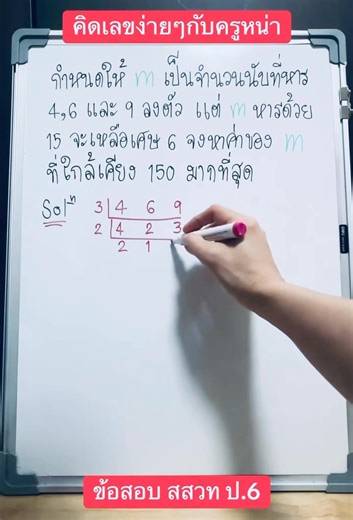 คิดเลขง่ายๆกับครูหน่า
กำหนดให้ m เป็นจำนวนนับที่หาร
4,6 และ 9 ลงตัว แต่ m หารด้วย
15 จะเหลือเศษ 6 จงหาค่าของ m
ที่ใกล้เคียง 150 มากที่สุด
Solⁿ 3 4 6 9
2 4 2 3
2 1
ข้อสอบ สสวท ป.6